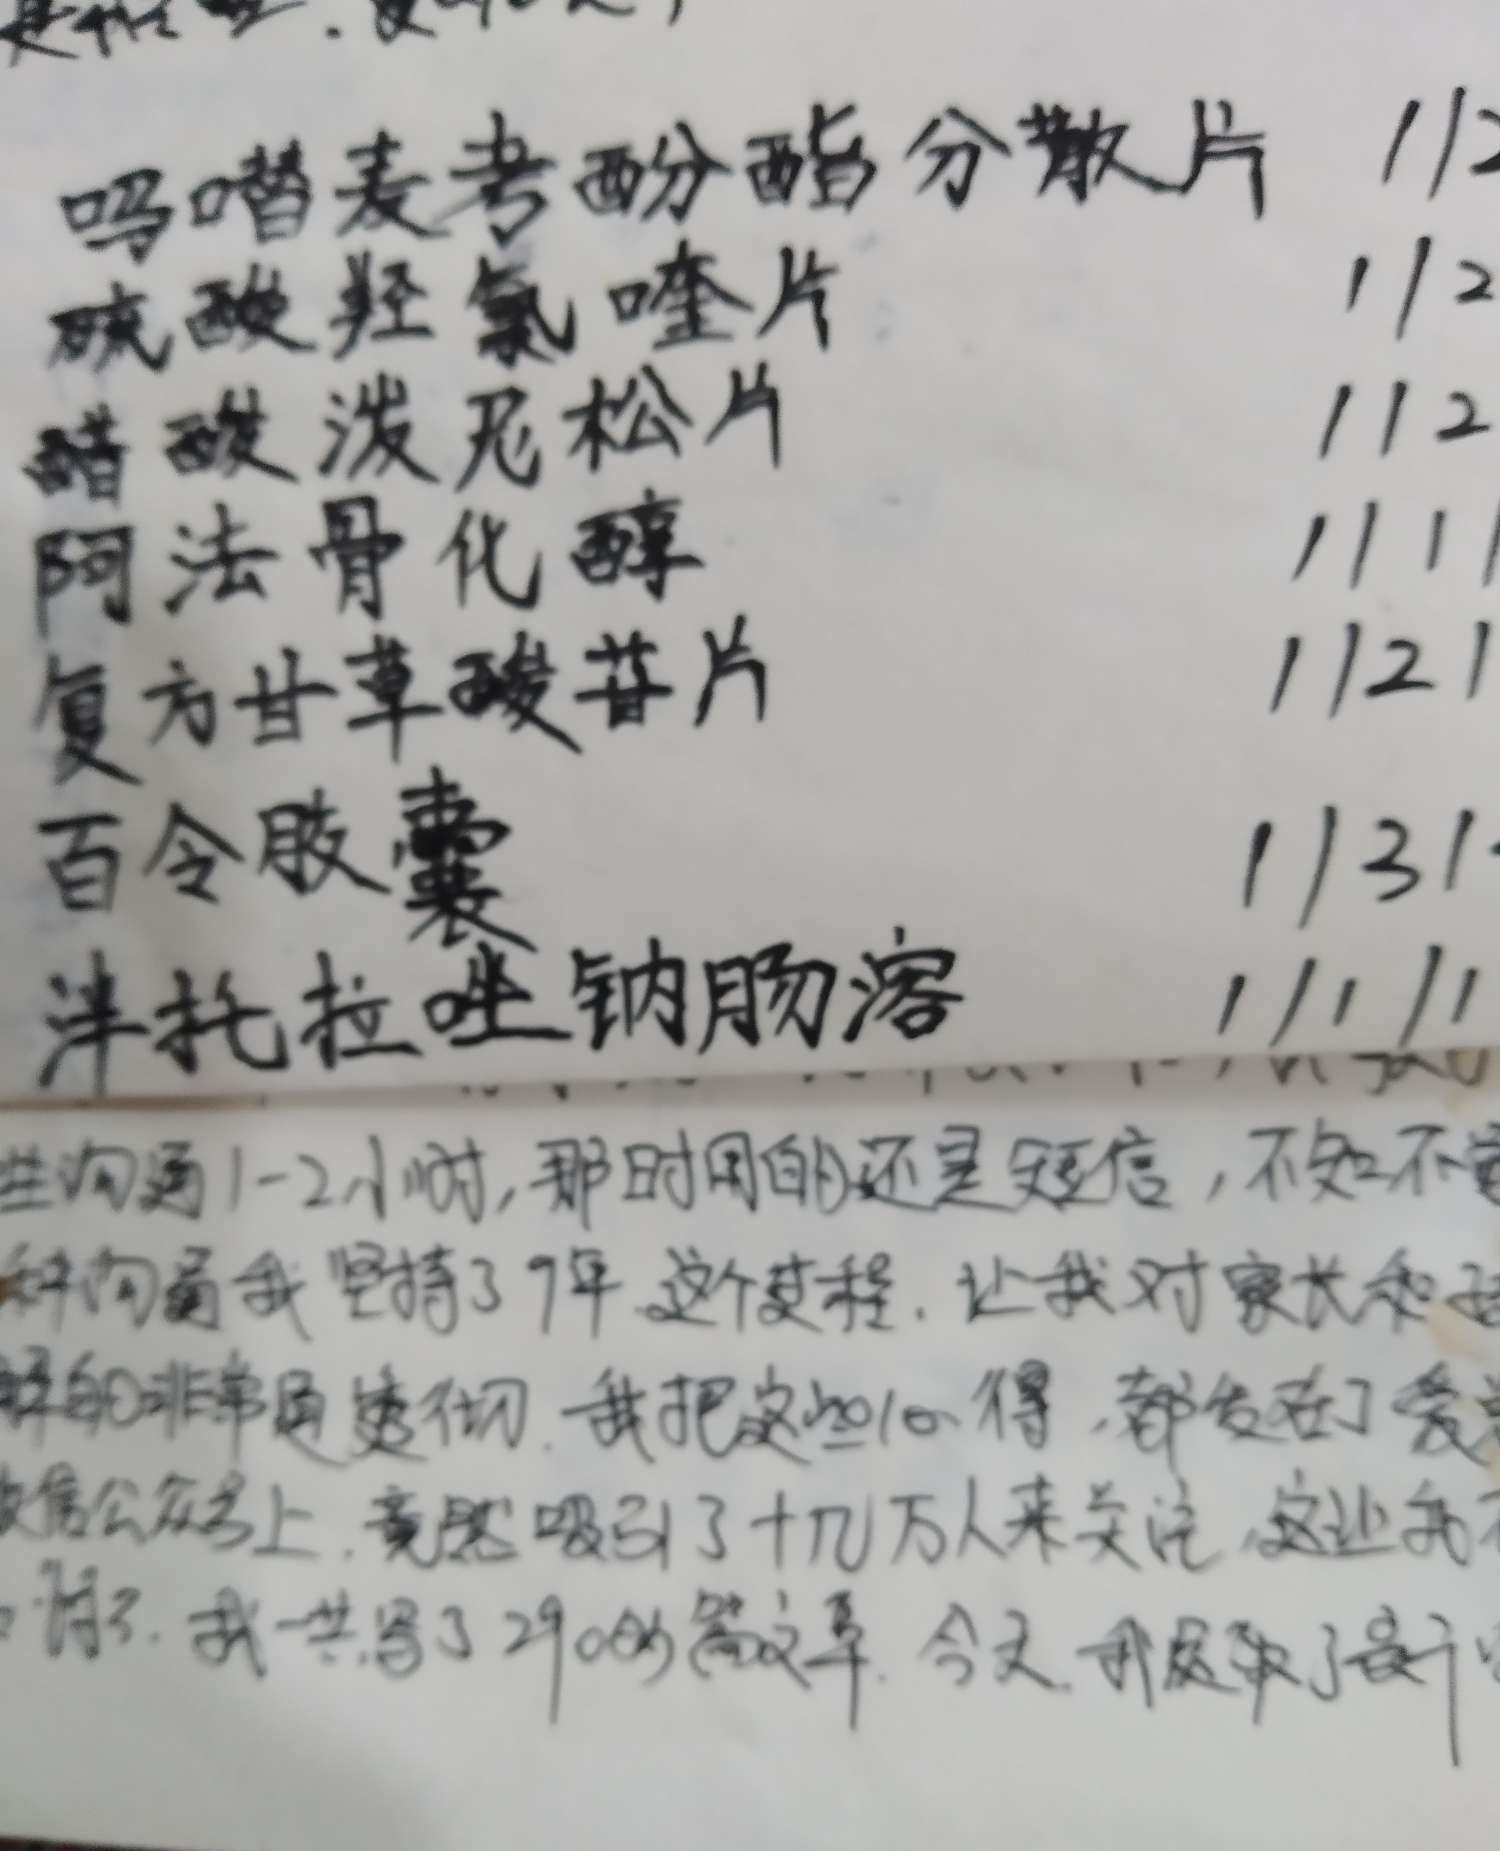 吗嘈麦考酚酯分散片 112
硫酸羟氯喹片 112
醋酸泼尼松片 112
阿法骨化醇 1111
复方甘草酸苷片 1121
百令胶囊 1131
泮托拉唑钠肠溶 11111
些沟通1-2小时,那时用的还是短信,不知不
种沟通我坚持了9年.这个过程.让我对家长和
解的非常透彻.我把这些心得.都发在了爱
微信公众号上.竟然吸引了十几万人来关注.这让我不
.我一共写了290的篇文章.今天.我选取了